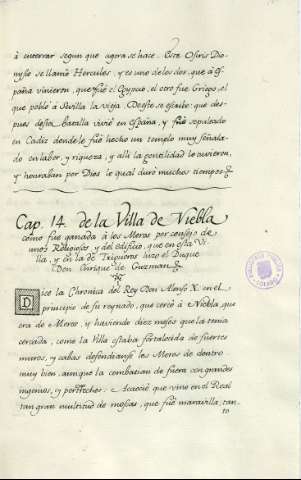 à enterrar segun que agora se hace. Este Osiris Dio-
nysio se llamò Hercules, y es uno de los dos, que à Es-
paña vinieron, que fuè el Egypcio, el otro fue Griego, el
que poblò à Sevilla la vieja. Deste se escribe: que des-
pues desta batalla viviò en España, y fuè sepultado
en Cadiz donde le fuè hecho un templo muy señala-
do en labor, y riqueza, y alli la gentilidad le tuvieron,
y honraban por Dios le qual durò muchos tiempos.
Cap. 14. de la Villa de Niebla
como fue ganada à los Moros por consejo de
unos Religiosos y del edificio, que en esta Vi-
lla, y en la de Trigueros hizo el Duque
Don Enrique de Guzman.
Dice la Chronica del Rey Don Alonso X. en el
principio de su reynado, que cercò à Niebla, que
era de Moros, y haviendo diez meses que la tenia
cercada, como la Villa estaba fortalecida de fuertes
muros, y cabas defendianse los Moros de dentro
muy bien, aunque la combatian de fuera con grandes
ingenios, y pertrechos. Acaeciò que vino en el Real
tan gran multitud de moscas, que fuè maravilla, tan-
to